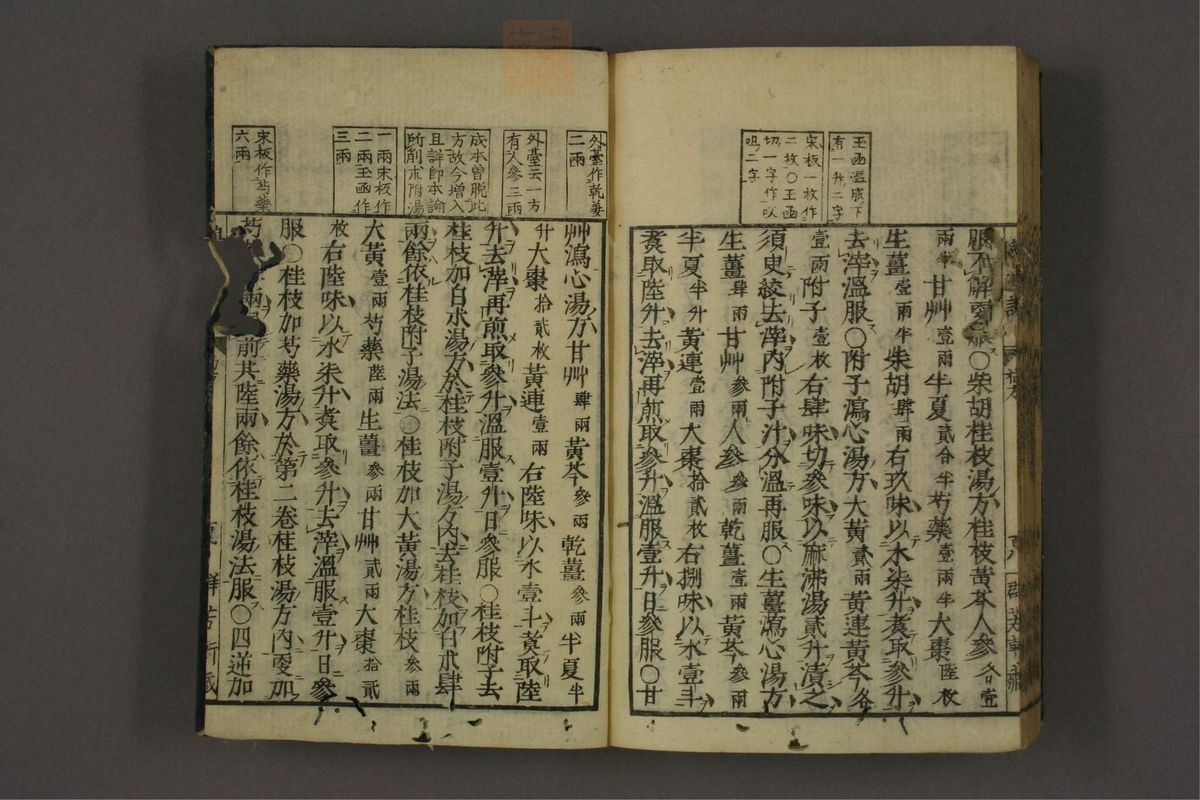 玉函溫服下
有一升二字
宋板一枚作
二枚〇玉函
切一字作㕮
咀二字
服不解〇柴胡桂枝湯方桂枝黃芩人參各壹
兩半甘艸壹兩半夏貳合半芍藥壹兩半大棗陸枚
生薑壹兩半柴胡肆兩右玖味以水柒升煑取參升
去滓溫服〇附子瀉心湯方大黃貳兩黃連黃芩各
壹兩附子壹枚右肆味切參味以麻沸湯貳升漬之
須臾絞去滓內附子汁分溫再服〇生薑瀉心湯方
生薑肆兩甘艸參兩人參參兩乾薑壹兩黃芩參兩
半夏半升黃連壹兩大棗拾貳枚右捌味以水壹斗
煑取陸升去滓再煎取參升溫服壹升日參服〇甘
外臺作乾姜
二兩
外臺云一方
有人參三兩
成本曾脫此
方故今增入
且詳卽本論
所削朮附湯
一兩宋板作
二兩玉函作
三兩
宋板作芍藥
六兩
艸瀉心湯方甘艸肆兩黃芩參兩乾薑參兩半夏半
升大棗拾貳枚黃連壹兩右陸味以水壹斗煑取陸
升去滓再煎取參升溫服壹升日參服〇桂枝附子去
桂枝加白朮湯方於桂枝附子湯方內去桂枝加白朮肆
兩餘依桂枝附子湯法〇桂枝加大黃湯方桂枝參兩
大黃壹兩芍藥陸兩生薑參兩甘艸貳兩大棗拾貳
枚右陸味以水柒升煑取參升去滓溫服壹升日參
服〇桂枝加芍藥湯方於第二卷桂枝湯方內更加
芍兩前共陸兩餘依桂枝湯法服〇四逆加